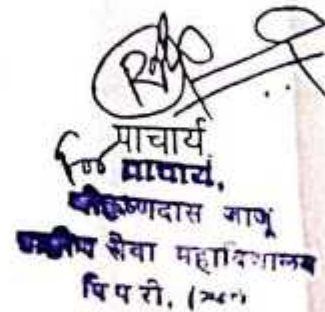 प्राचार्य
For प्राचार्य,
श्रीकृष्णदास जाजू
ग्रामीण सेवा महाविद्यालय
पिपरी,